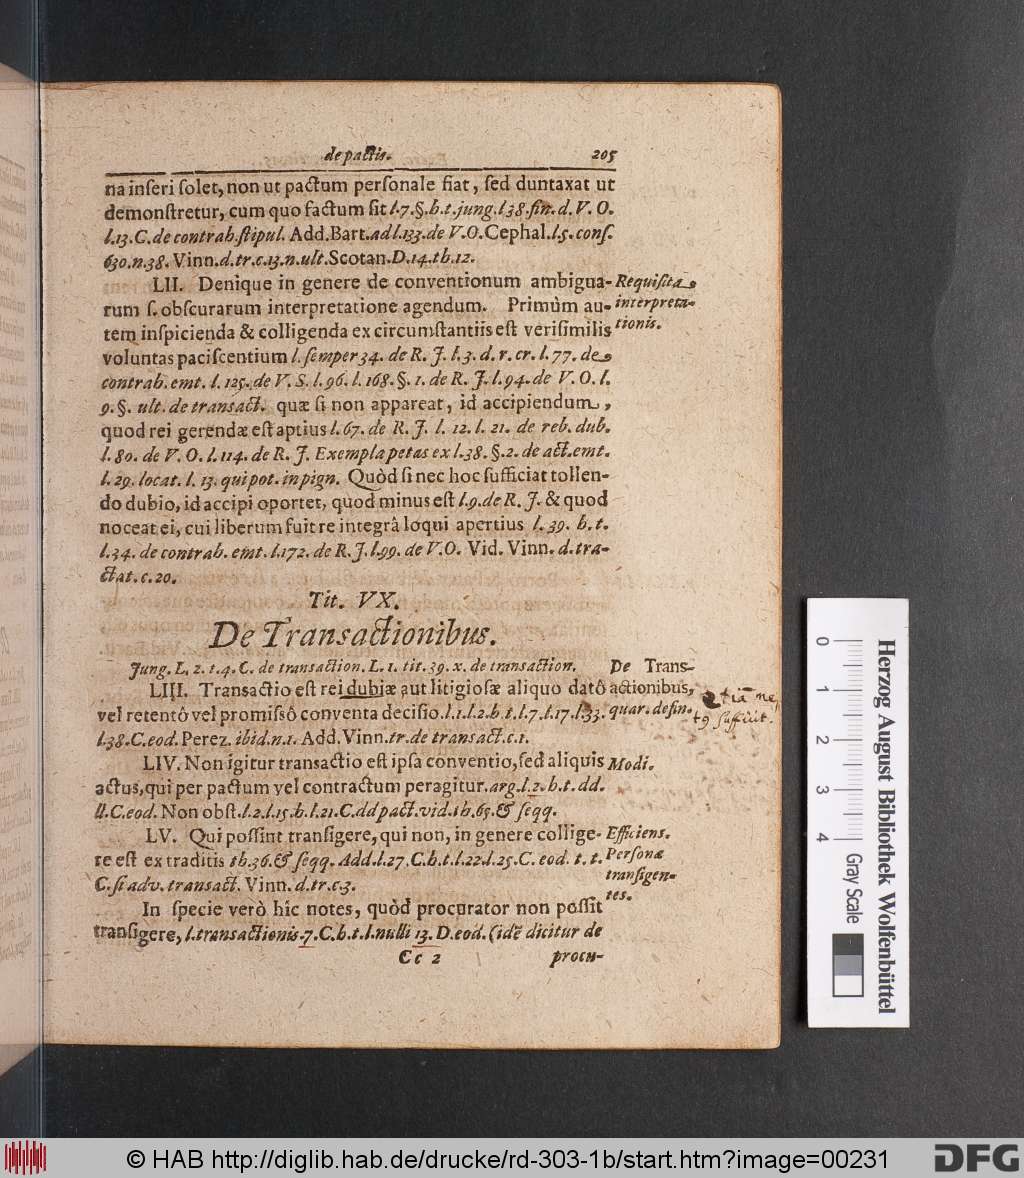 de pactis. 205
na inseri solet, non ut pactum personale fiat, sed duntaxat ut
demonstretur, cum quo factum sit l.7.§.h.t.jung.l38.fin.d.V.O.
l.13.C.de contrah.stipul. Add.Bart.ad l.133.de V.O.Cephal.l.5.cons.
630.n.38. Vinn.d.tr.c.13.n.ult.Scotan.D.14.th.12.
LII. Denique in genere de conventionum ambigua-
rum s. obscurarum interpretatione agendum. Primùm au-
tem inspicienda & colligenda ex circumstantiis est verisimilis
voluntas paciscentium l. semper 34. de R. J. l.3. d. r. cr. l. 77. de
contrah. emt. l. 125. de V. S. l. 96. l. 168. §. 1. de R. J. l. 94. de V. O. l.
9. §. ult. de transact. quæ si non appareat, id accipiendum,
quod rei gerendæ est aptius l. 67. de R. J. l. 12. l. 21. de reb. dub.
l. 80. de V. O. l. 114. de R. J. Exempla petas ex l.38. §. 2. de act. emt.
l. 29. locat. l. 13. qui pot. in pign. Quòd si nec hoc sufficiat tollen-
do dubio, id accipi oportet, quod minus est l.9.de R. J. & quod
noceat ei, cui liberum fuit re integrâ loqui apertius l. 39. h. t.
l.34. de contrah. emt. l.172. de R. J. l.99. de V.O. Vid. Vinn. d. tra-
ctat. c. 20.
Requisita
interpreta-
tionis.
Tit. VX.
De Transactionibus.
Jung. L. 2. t. 4. C. de transaction. L. 1. tit. 39. x. de transaction.
LIII. Transactio est rei dubiæ aut litigiosæ aliquo datô
vel retentô vel promissô conventa decisio.l.1.l.2.h t.l.7.l.17.l.33.
l.38.C.eod. Perez. ibid.n.1. Add. Vinn.tr.de transact.c.1.
De Trans-
actionibus,
quar. defin.
etiā ne
sufficit.
LIV. Non igitur transactio est ipsa conventio, sed aliquis
actus, qui per pactum vel contractum peragitur. arg.l.2.h.t. dd.
ll.C.eod. Non obst.l.2.l.15.h.l.21.C.dd pact.vid.th.65.& seqq.
Modi.
LV. Qui possint transigere, qui non, in genere collige-
re est ex traditis th.36.& seqq. Add.l.27.C.h.t.l.22.l.25.C. eod. t. t.
C. si adv. transact. Vinn. d.tr.c.3.
Efficiens.
Personæ
transigen-
tes.
In specie verò hîc notes, quòd procurator non possit
transigere, l. transactionis.7.C.h.t.l.nulli 13. D.eod. (idē dicitur de
Cc 2 procu-
0 1 2 3 4
Gray Scale
Herzog August Bibliothek Wolfenbüttel
© HAB http://diglib.hab.de/drucke/rd-303-1b/start.htm?image=00231
DFG